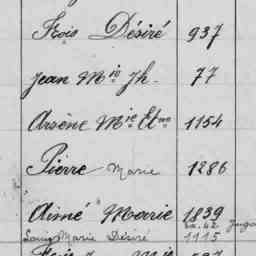 Frois Désiré 937
Jean Mie Jh. 77
Arsène Mie Etne 1154
Pierre Marie 1286
Aimé Marie 1839
Louis Marie Désiré 1115